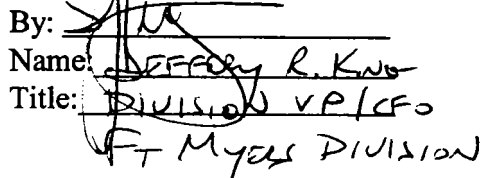 By:
Name: JEFFERY R. KING
Title: DIVISION VP/CFO
FT MYERS DIVISION